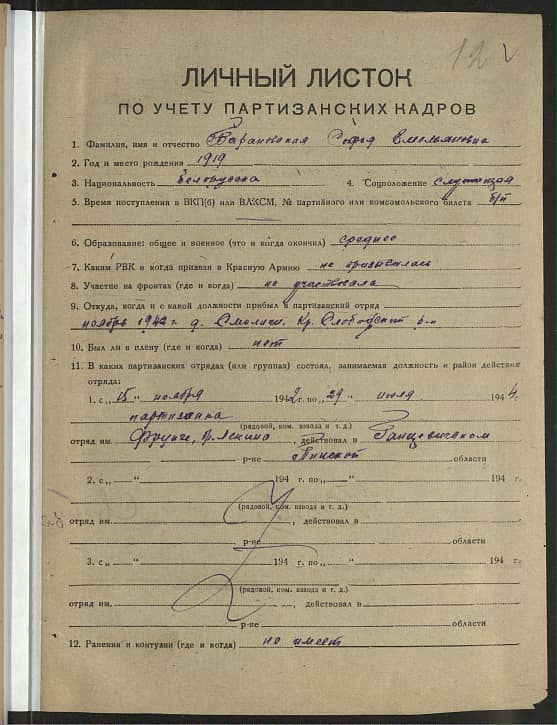 12
ЛИЧНЫЙ ЛИСТОК
ПО УЧЕТУ ПАРТИЗАНСКИХ КАДРОВ
1. Фамилия, имя и отчество Барановская Софья Емельяновна
2. Год и место рождения 1919
3. Национальность Белорусска 4. Соцположение служащая
5. Время поступления в ВКП(б) или ВЛКСМ, № партийного или комсомольского билета б/п
6. Образование: общее и военное (что и когда окончил) среднее
7. Каким РВК и когда призван в Красную Армию не призывалась
8. Участие на фронтах (где и когда) не участвовала
9. Откуда, когда и с какой должности прибыл в партизанский отряд
ноябрь 1942 г д. Смоличи. Кр. Слободский р-н
10. Был ли в плену (где и когда) нет
11. В каких партизанских отрядах (или группах) состоял, занимаемая должность и район действия
отряда:
1. с „15“ ноября 1942 г. по „29“ июля 1944.
партизанка
(рядовой, ком. взвода и т. д.)
отряд им. Фрунзе, действовал в Ганцевичском
р-не Пинской области
2. с „ “ 194 г. по „ “ 194 г.
(рядовой, ком. взвода и т. д.)
отряд им. , действовал в
р-не области
3. с „ “ 194 г. по „ “ 194 г.
(рядовой, ком. взвода и т. д.)
отряд им. , действовал в
р-не области
12. Ранения и контузии (где и когда) не имеет